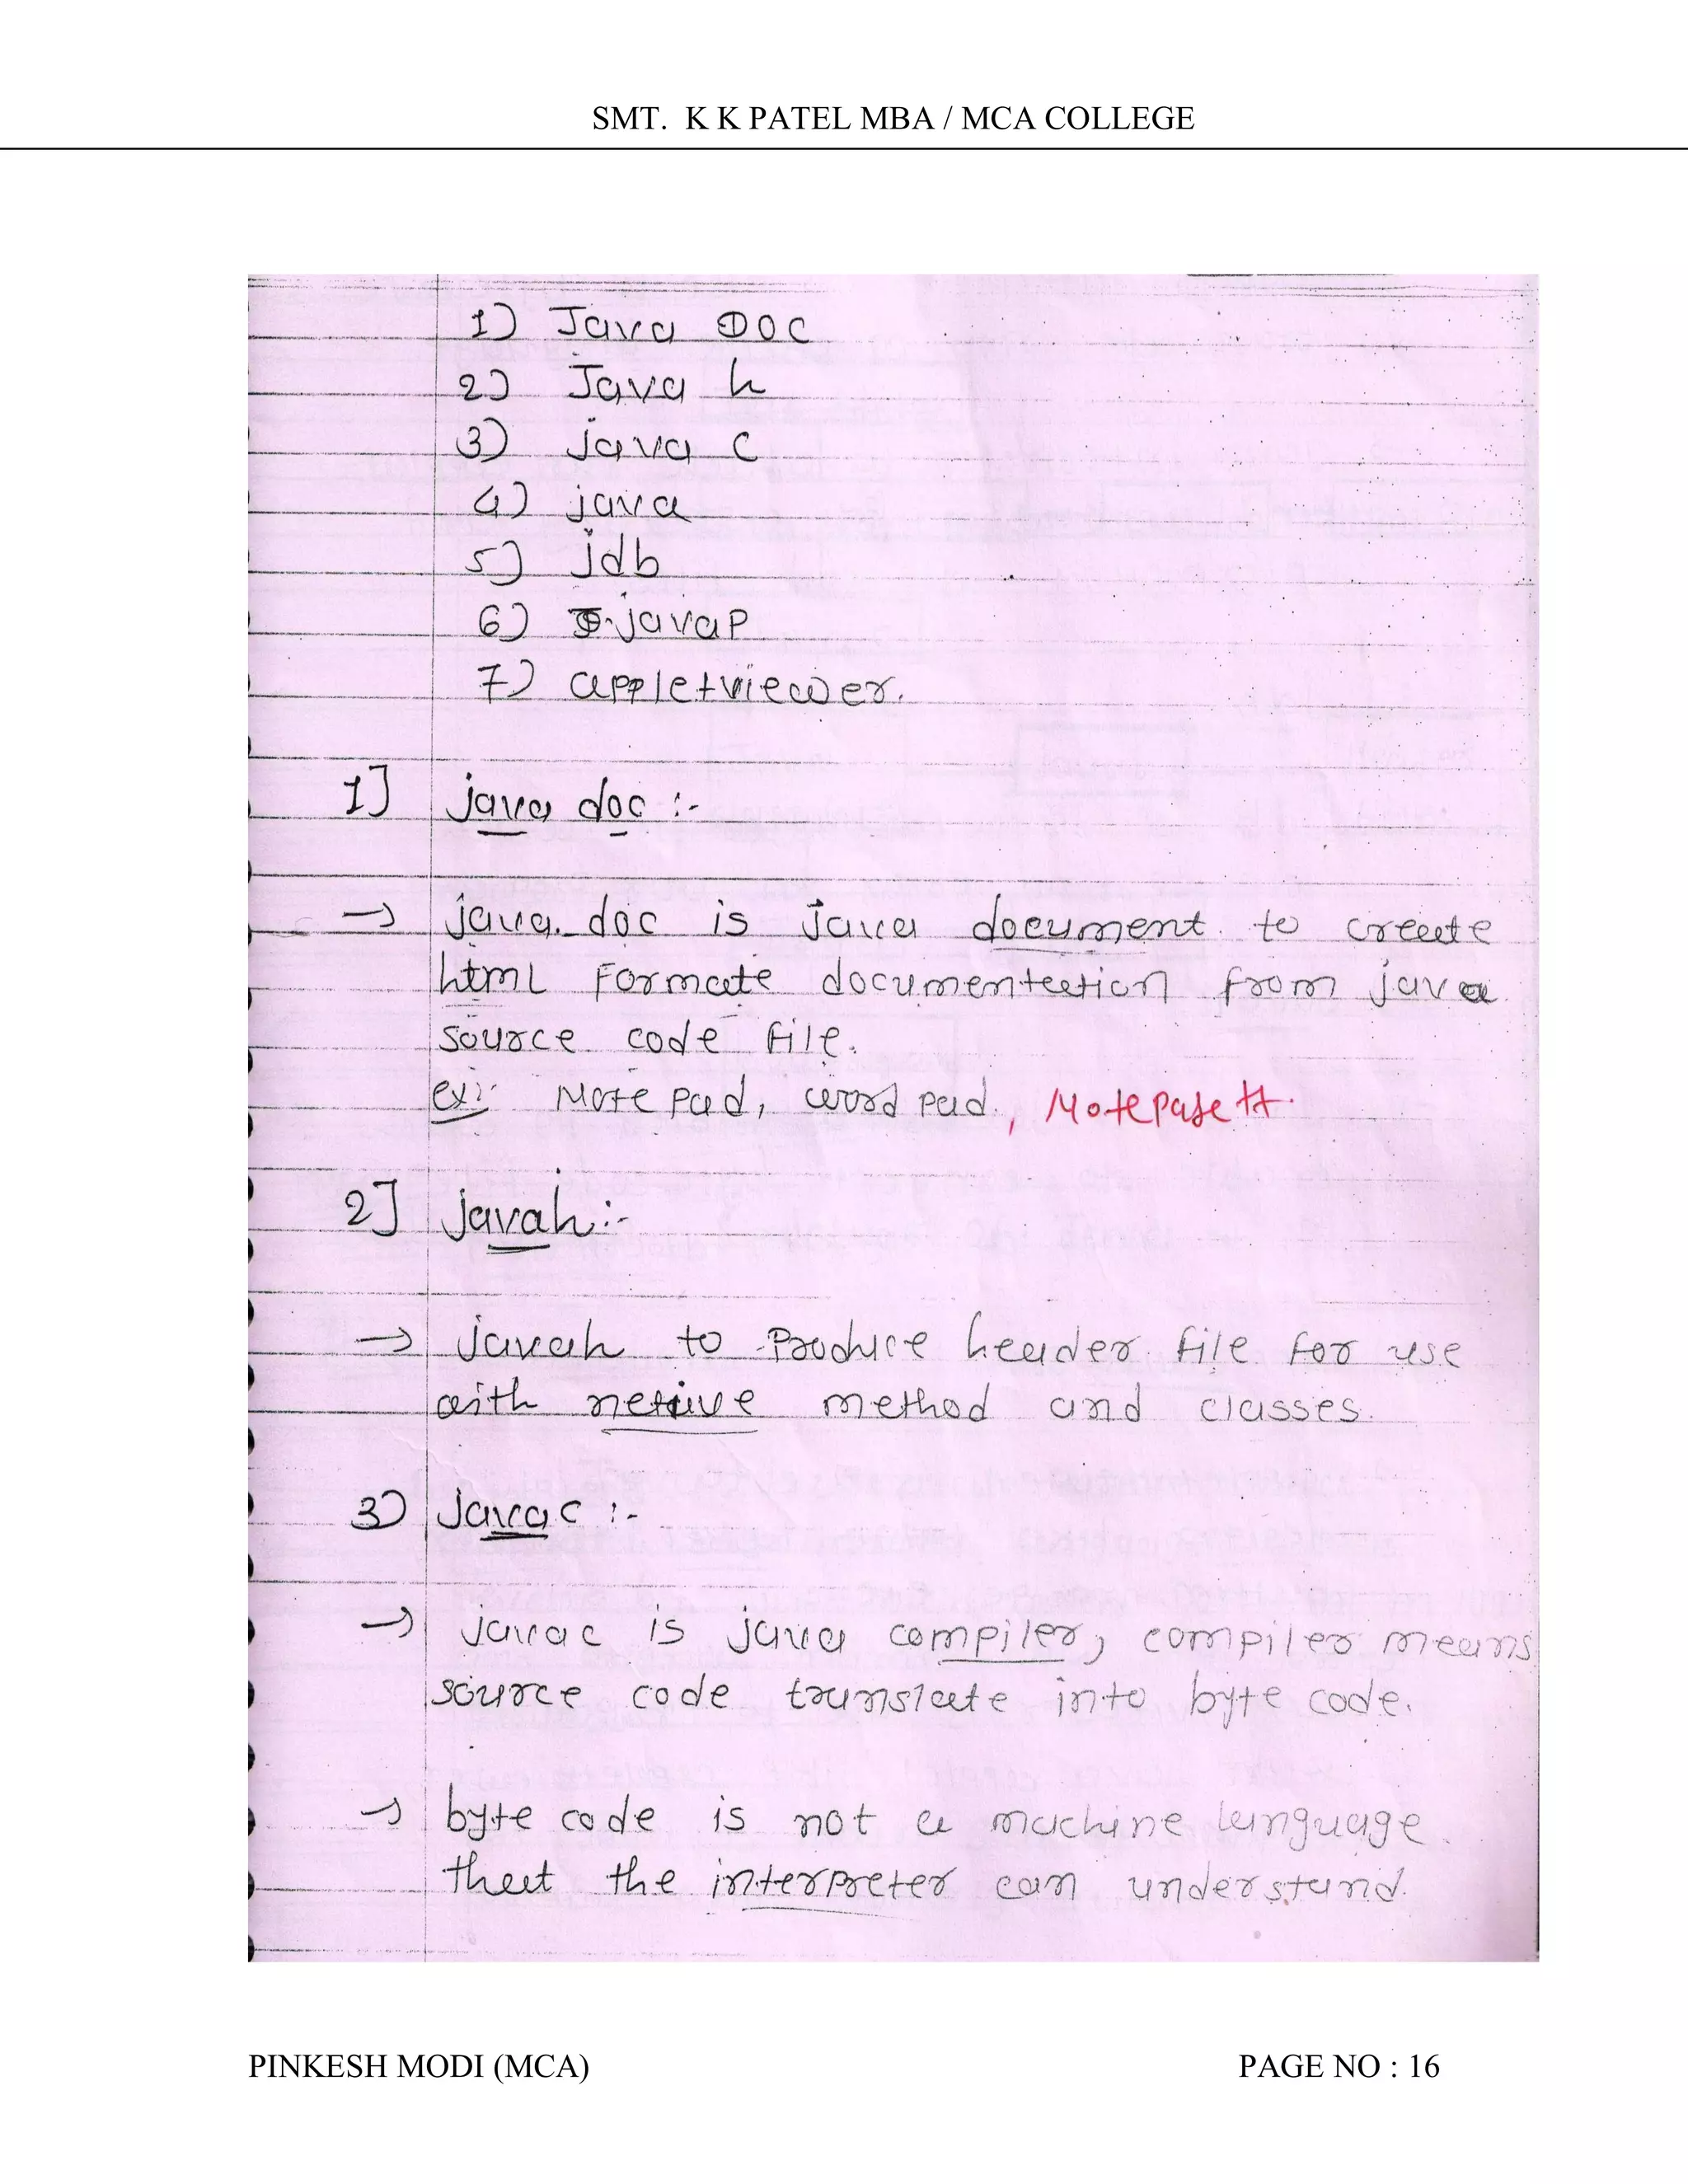 SMT. K K PATEL MBA / MCA COLLEGE
1) Java DOC
2) Java h
3) java c
4) java
5) jdb
6) javap
7) appletviewer.
1] java doc :-
→ java. doc is java document to create
html Formate documentation from java
source code file.
ex:- Notepad, word pad, Notepade ++.
2] javah :-
→ javah to produce header file for use
with netive method and classes.
3) javac :-
→ javac is java compiler, compiler means
source code translate into byte code.
→ byte code is not a machine language
that the interpreter can understand.
PINKESH MODI (MCA) PAGE NO : 16